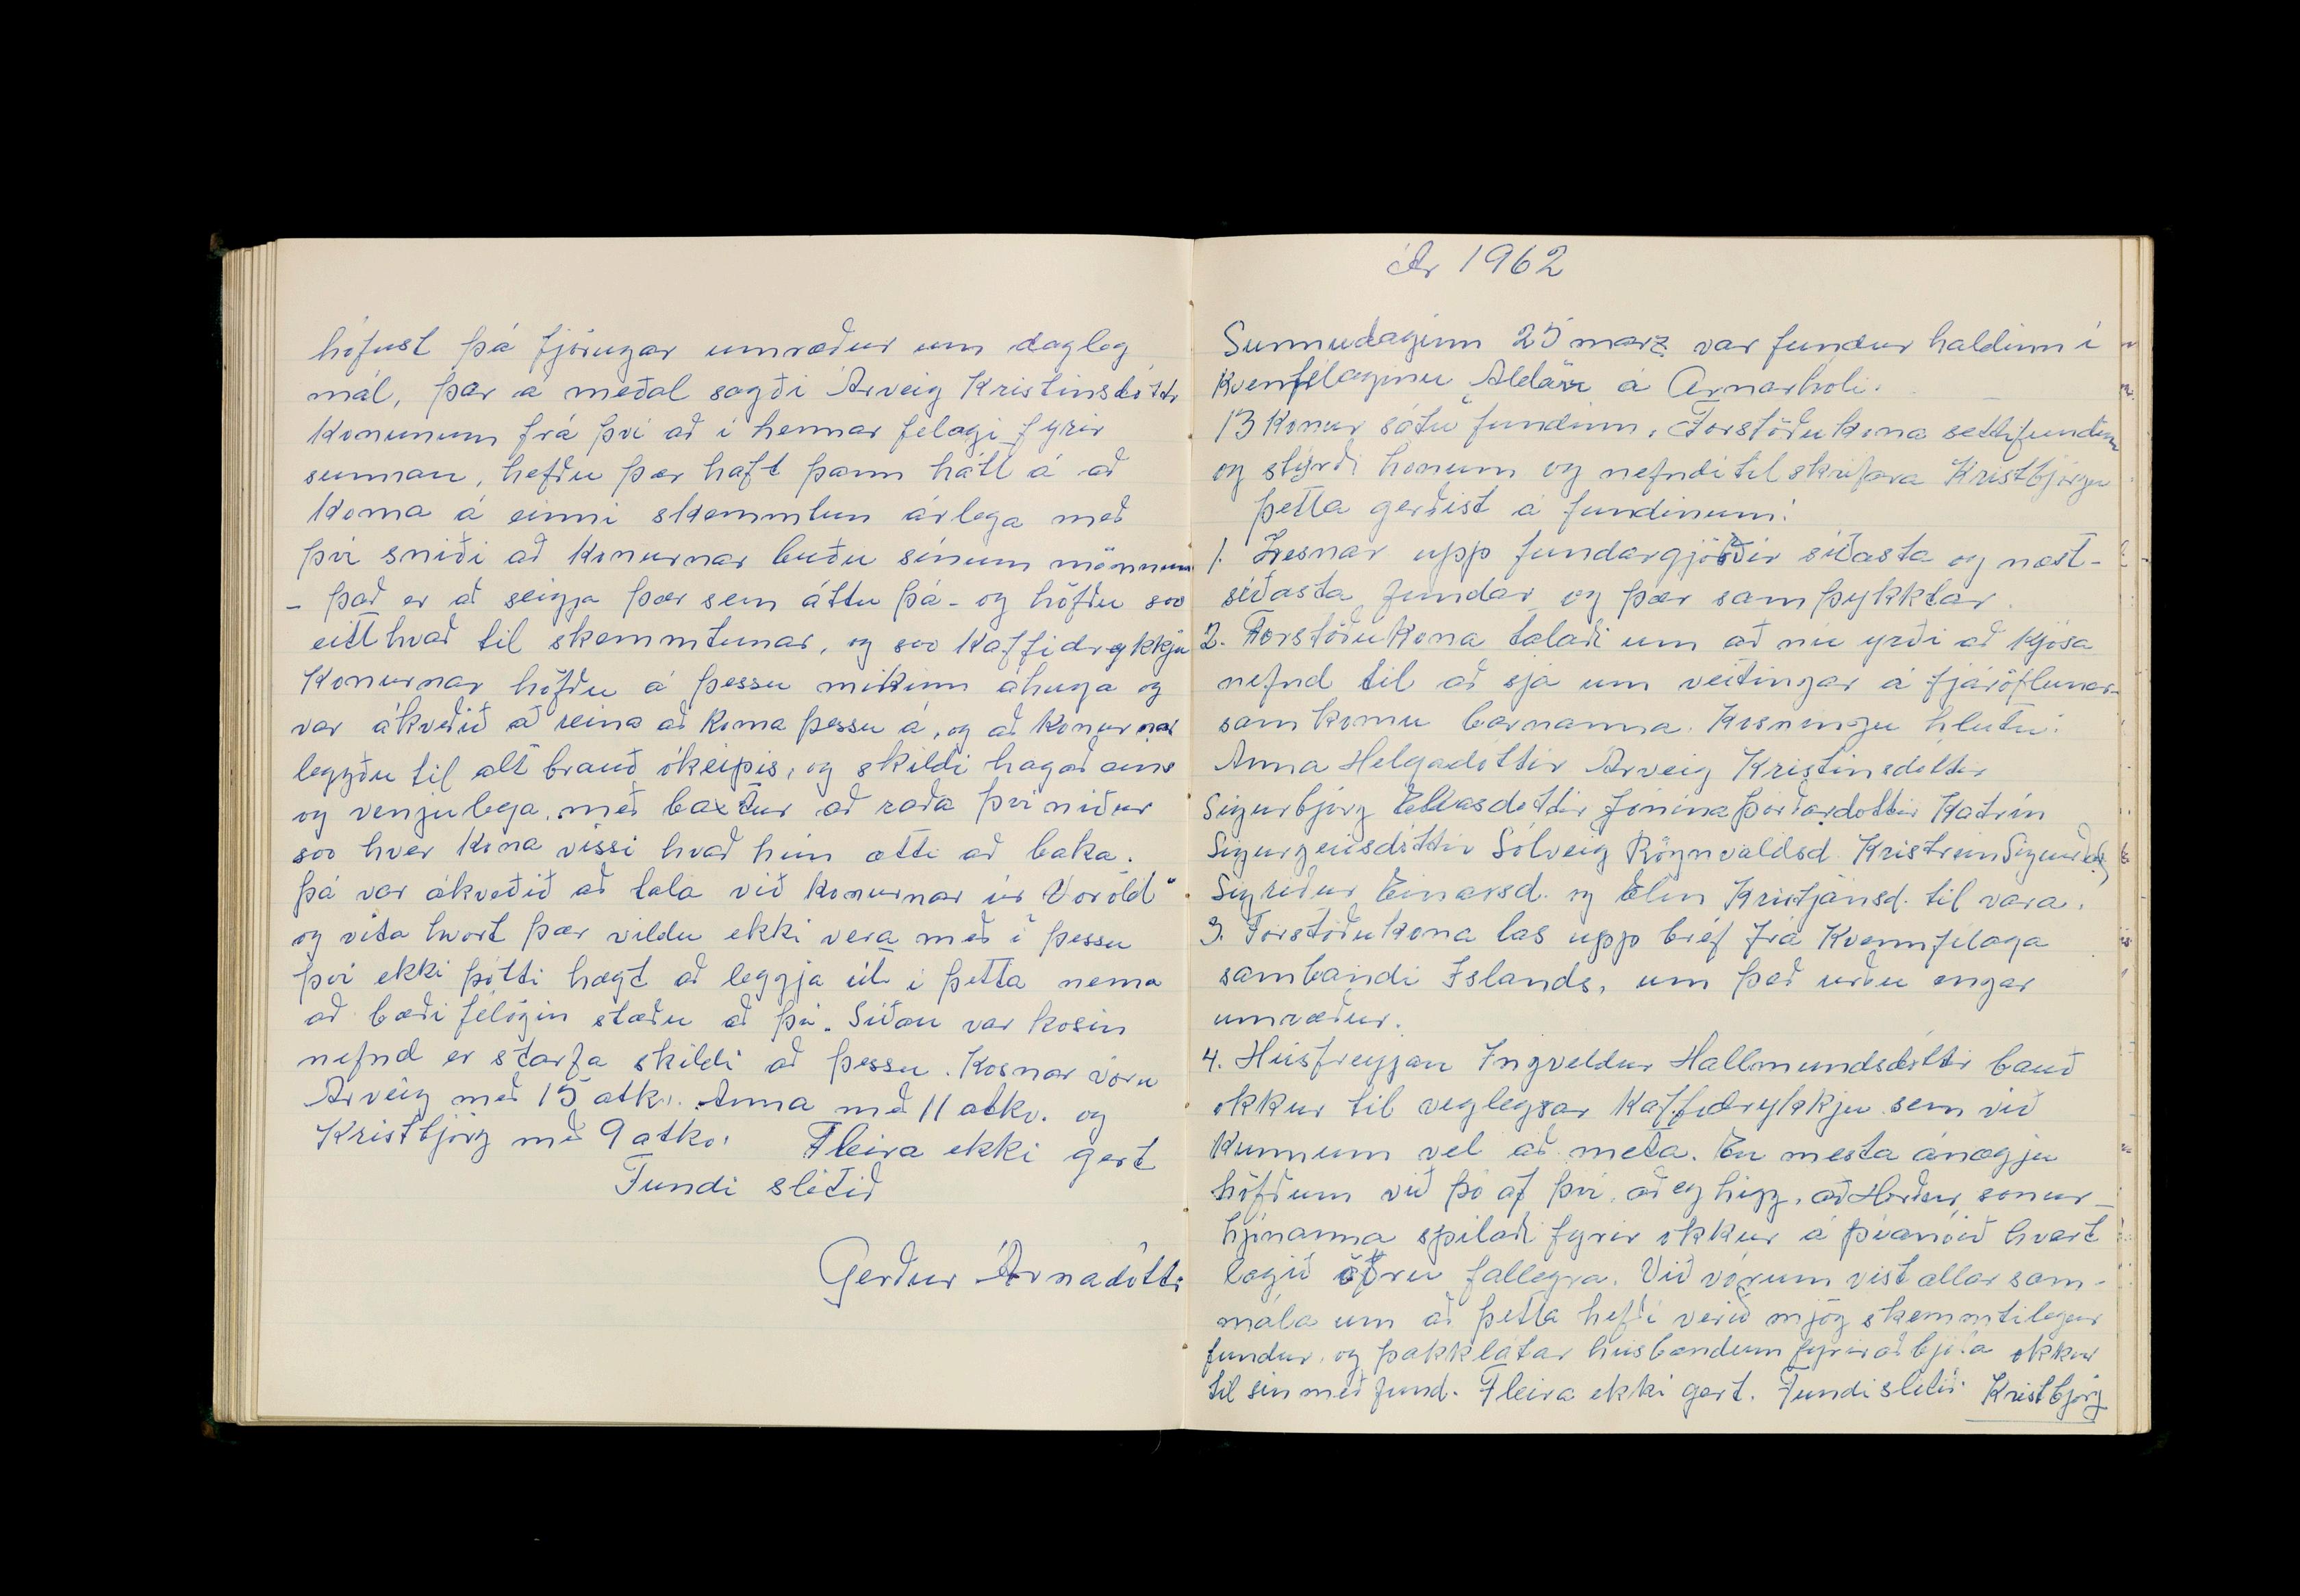 hófust þá fjörugar umræður um dagleg
mál, þar á meðal sagði Árveig Kristinsdóttir
konunum frá því að í hennar félagi fyrir
sunnan, hefðu þær haft þann hátt á að
koma á einni skemmtun árlega með
því sniði að konurnar buðu sínum mönnum
- það er að seigja þær sem áttu þá - og höfðu svo
eitthvað til skemmtunar, og svo kaffidrykkju
Konurnar höfðu á þessu mikinn áhuga og
var ákveðið að reina að koma þessu á, og að konurnar
leggðu til alt brauð ókeipis, og skildi hagað eins
og venjulega, með baxtur að raða því niður
svo hver kona vissi hvað hún ætti að baka.
þá var ákveðið að tala við konurnar úr Voröld"
og vita hvort þær vildu ekki vera með í þessu
því ekki þótti hægt að leggja út í þetta nema
að bæði félögin stæðu að því. Síðan var kosin
nefnd er starfa skildi að þessu. Kosnar vóru
Arveig með 15 atkv. Anna með 11 atkv. og
Kristbjörg með 9 atkv. Fleira ekki gert
Fundi slitið
Gerður Árnadóttir
Ár 1962
Sunnudaginn 25 marz var fundur haldinn í
kvenfélaginu Aldan á Arnarhóli.
13 konur sátu fundinn. Forstöðukona setti fundinn
og stýrði honum og nefndi til skrifara Kristbjörgu
þetta gerðist á fundinum:
1. Lesnar upp fundargjörðir síðasta og næst-
síðasta fundar og þær samþykktar.
2. Forstöðukona talaði um að nú yrði að kjósa
nefnd til að sjá um veitingar á fjáröflunar-
samkomu barnanna. Kosningu hlutu:
Anna Helgadóttir Árveig Kristinsdóttir
Sigurbjörg Elíasdóttir Jónína Þórðardóttir Katrín
Sigurgeirsdóttir Sólveig Rögnvaldsd. Kristrún Sigurðard.
Sigríður Einarsd. og Elín Kristjánsd. til vara.
3. Forstöðukona las upp bréf frá Kvennfélaga
sambandi Íslands, um það urðu engar
umræður.
4. Húsfreyjan Ingveldur Hallmundsdóttir bauð
okkur til veglegrar kaffidrykkju sem við
kunnum vel að meta. En mesta ánægju
höfðum við þó af því, að eg higg, að Hörður sonur
hjónanna spilaði fyrir okkur á píanóið hvert
lagið öðru fallegra. Við vórum víst allar sam-
mála um að þetta hefði verið mjög skemmtilegur
fundur, og þakklátar húsbændum fyrir að bjóða okkur
til sín með fund. Fleira ekki gert. Fundi slitið. Kristbjörg